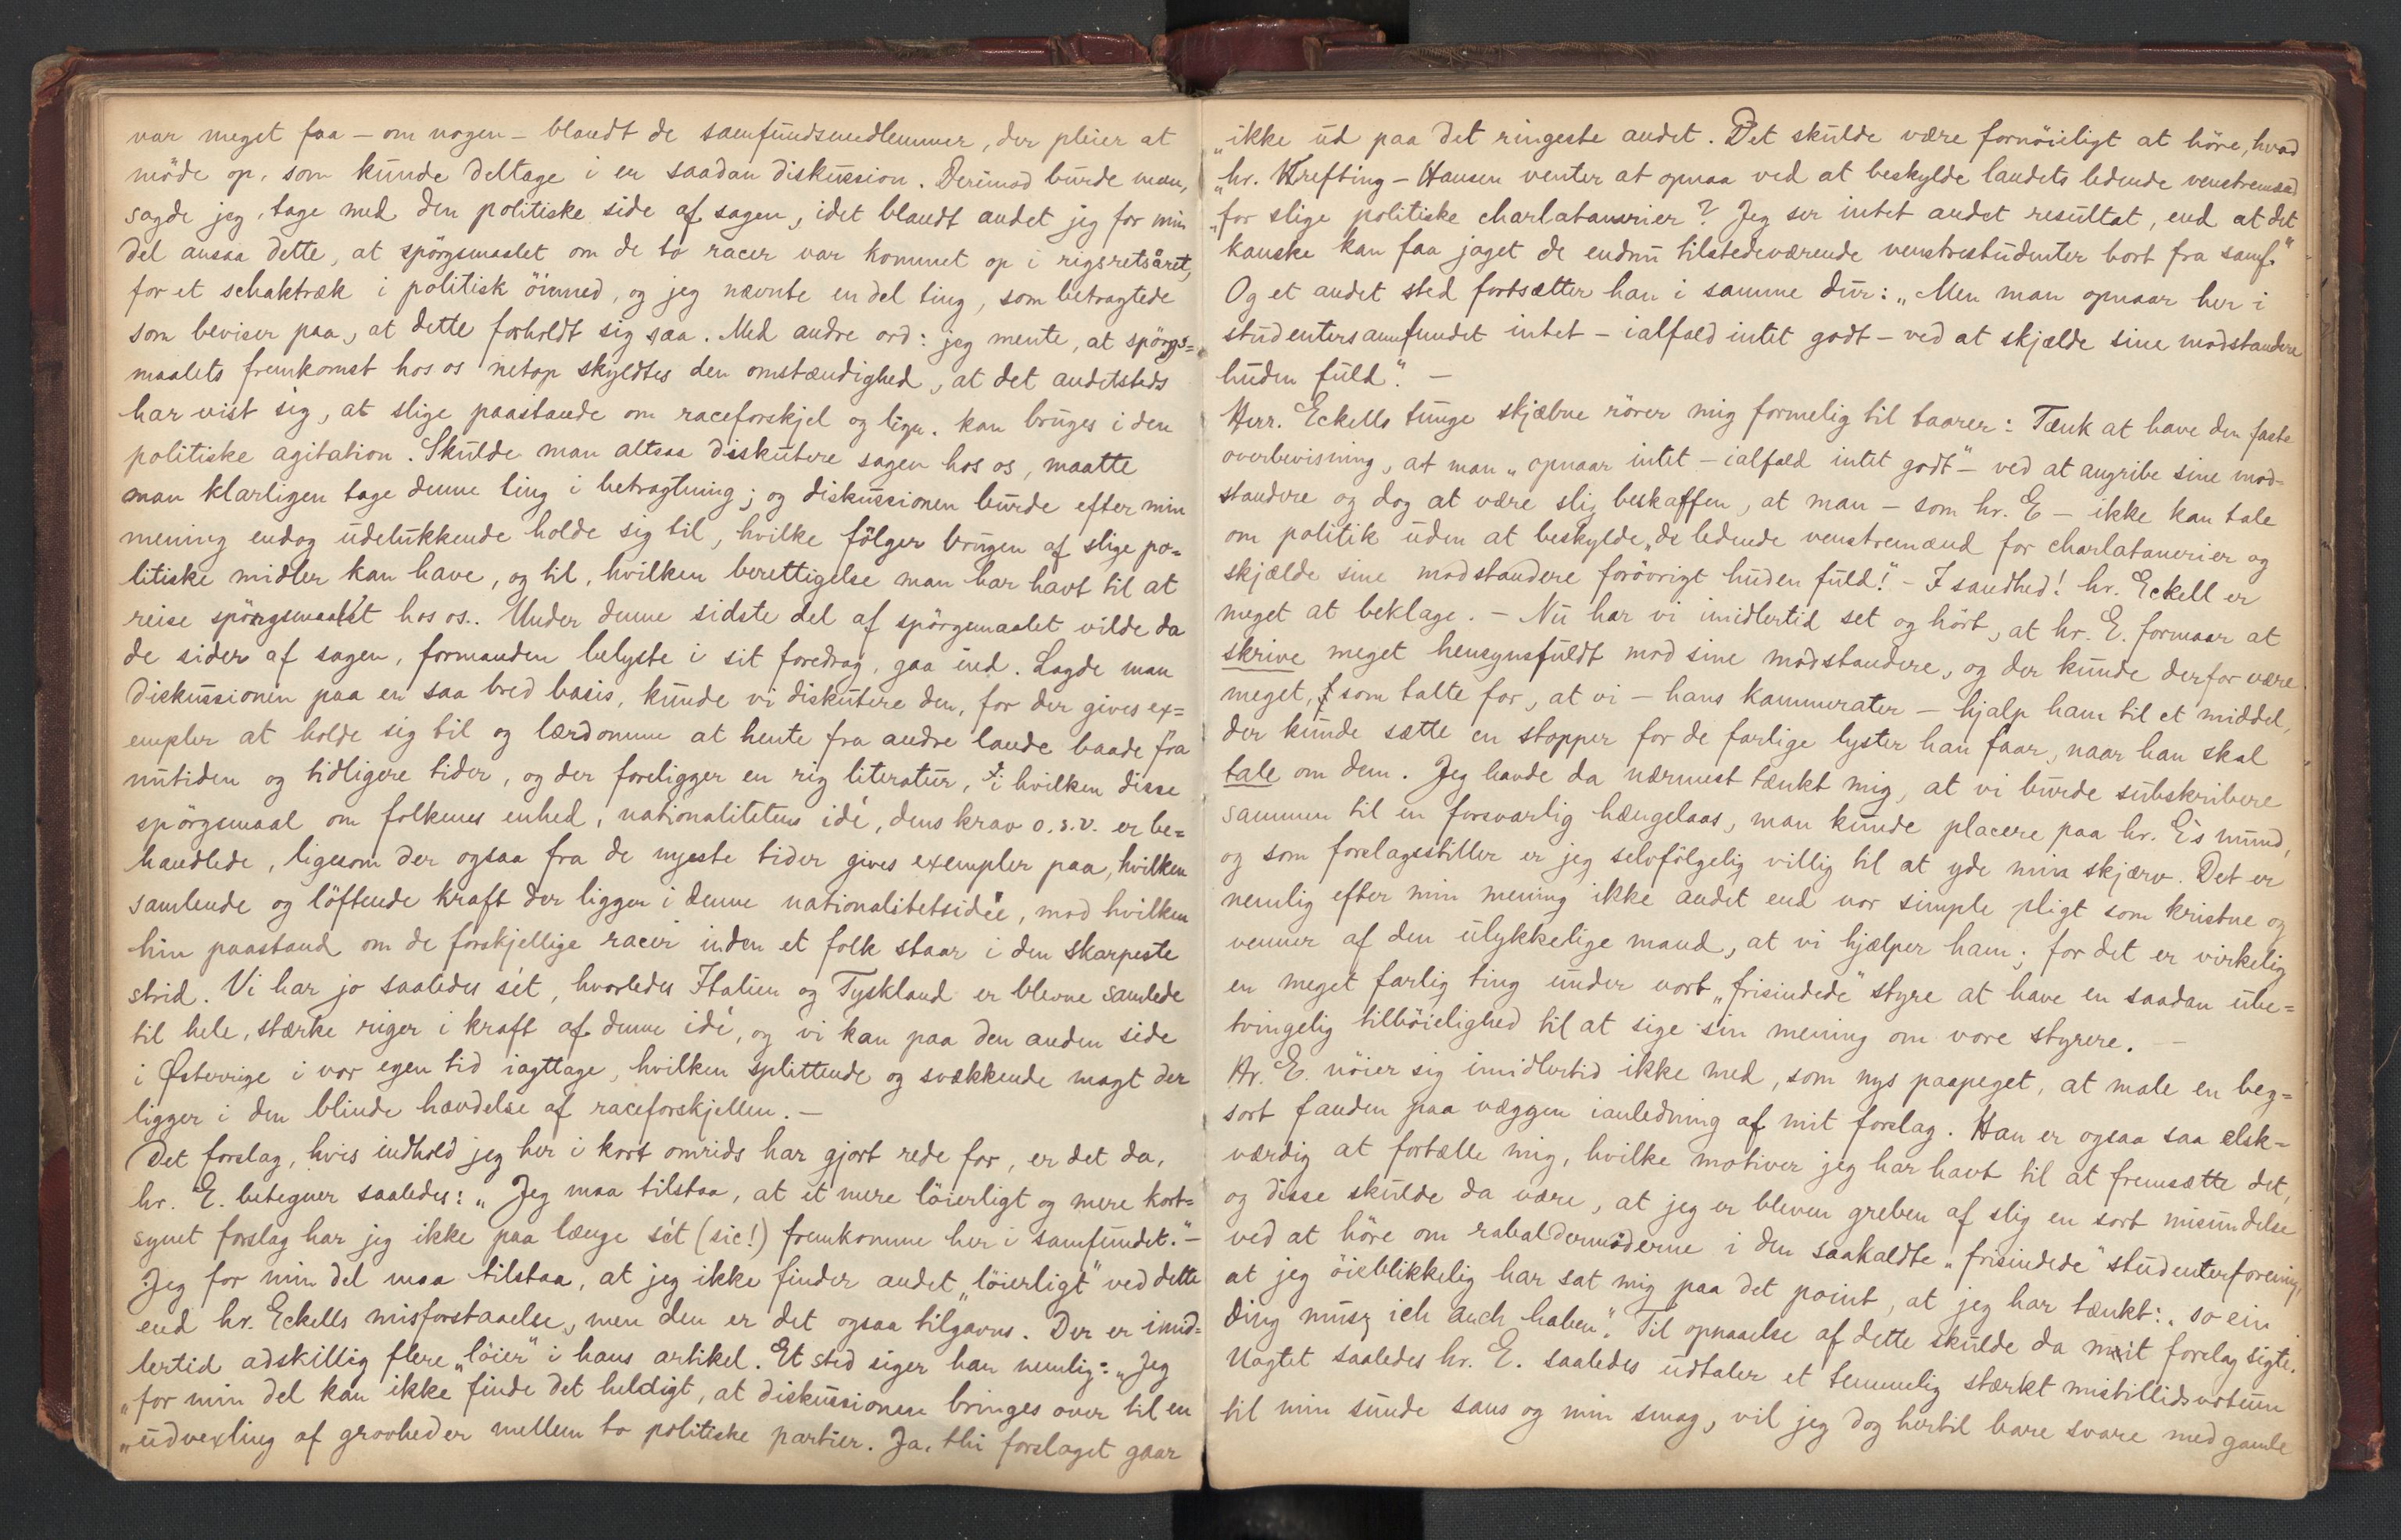 var meget faa – om nogen – blandt de samfundsmedlemmer, der pleier at
möde op, som kunde deltage i en saadan diskussion. Derimod burde man,
sagde jeg, tage med den politiske side af sagen, idet blandt andet jeg for min
del ansaa dette, at spörgsmaalet om de to racer var kommet op i rigsretsåret,
for et schaktræk i politisk öiemed, og jeg nævnte en del ting, som betragtede
som beviser paa, at dette forholdt sig saa. Med andre ord: jeg mente, at spörgs=
maalets fremkomst hos os netop skyldtes den omstændighed, at det andetsteds
har vist sig, at slige paastande om raceforskjel og lign. kan bruges i den
politiske agitation. Skulde man altsaa diskutere sagen hos os, maatte
man klarligen tage denne ting i betragtning; og diskussionen burde efter min
mening endog udelukkende holde sig til, hvilke fölger brugen af slige po=
litiske midler kan have, og til, hvilken berettigelse man har havt til at
reise spörgsmaalet hos os. Under denne sidste del af spörgsmaalet vilde da
de sider af sagen, formanden belyste i sit foredrag, gaa ind. Lagde man
diskussionen paa en saa bred basis, kunde vi diskutere den, for der gives ex=
empler at holde sig til og lærdomme at hente fra andre lande baade fra
nutiden og tidligere tider, og der foreligger en rig literatur, i hvilken disse
spörgsmaal om folkenes enhed, nationalitetens idé, dens krav o.s.v. er be=
handlede, ligesom der ogsaa fra de nyeste tider gives exempler paa, hvilken
samlende og löftende kraft der ligger i denne nationalitetsidée, mod hvilken
hin paastand om de forskjellige racer inden et folk staar i den skarpeste
strid. Vi har jo saaledes sét, hvorledes Italien og Tyskland er blevne samlede
til hele, stærke riger i kraft af denne idé, og vi kan paa den anden side
i Østerrige i vor egen tid iagttage, hvilken splittende og svækkende magt der
ligger i den blinde hævdelse af raceforskjellen. –
Det forslag, hvis indhold jeg her i kort omrids har gjort rede for, er det da,
hr. E. betegner saaledes: „Jeg maa tilstaa, at et mere löierligt og mere kort=
synet forslag har jeg ikke paa længe sét (sic!) fremkomme her i samfundet." –
Jeg for min del maa tilstaa, at jeg ikke finder andet „löierligt" ved dette
end hr. Eckells misforstaaelse, men den er det ogsaa tilgavns. Der er imid=
lertid adskillig flere „löier" i hans artikel. Et sted siger han nemlig: „Jeg
„for min del kan ikke finde det heldigt, at diskussionen bringes over til en
„udvexling af grovheder mellem to politiske partier. Ja, thi forslaget gaar
„ikke ud paa det ringeste andet. Det skulde være fornöieligt at höre, hvad
„hr. Krefting-Hansen venter at opnaa ved at beskylde landets ledende venstremænd
„for slige politiske charlatanerier? Jeg ser intet andet resultat, end at det
kanske kan faa jaget de endnu tilstedeværende venstrestudenter bort fra samf."
Og et andet sted fortsætter han i samme dur: „Men man opnaar her i
studentersamfundet intet – ialfald intet godt – ved at skjælde sine modstandere
huden fuld". –
Herr. Eckells tunge skjæbne rörer mig formelig til taarer: Tænk at have den faste
overbevisning, at man „opnaar intet – ialfald intet godt" – ved at angribe sine mod-
standere og dog at være slig beskaffen, at man – som hr. E – ikke kan tale
om politik uden at beskylde „de ledende venstremænd for charlatanerier og
skjælde sine modstandere forövrigt huden fuld!" – I sandhed! hr. Eckell er
meget at beklage. – Nu har vi imidlertid set og hört, at hr. E. formaar at
skrive meget hensynsfuldt mod sine modstandere, og der kunde derfor være
meget, som talte for, at vi – hans kammerater – hjalp ham til et middel,
der kunde sætte en stopper for de farlige lyster han faar, naar han skal
tale om dem. Jeg havde da nærmest tænkt mig, at vi burde subskribere
sammen til en forsvarlig hængelaas, man kunde placere paa hr. E's mund,
og som forslagsstiller er jeg selvfölgelig villig til at yde min skjærv. Det er
nemlig efter min mening ikke andet end vor simple pligt som kristne og
venner af den ulykkelige mand, at vi hjælper ham; for det er virkelig
en meget farlig ting under vort „frisindede" styre at have en saadan ube=
tvingelig tilböielighed til at sige sin mening om vore styrere. –
Hr. E. nöier sig imidlertid ikke med, som nys paapeget, at male en beg=
sort fanden paa væggen ianledning af mit forslag. Han er ogsaa saa elsk=
værdig at fortælle mig, hvilke motiver jeg har havt til at fremsætte det,
og disse skulde da være, at jeg er bleven greben af slig en sort misundelse
ved at höre om rabaldermöderne i den saakaldte „frisindede" studenterforening,
at jeg öieblikkelig har sat mig paa det point, at jeg har tænkt: „so ein
ding musz ich auch haben". Til opnaaelse af dette skulde da mit forslag sigte.
Uagtet saaledes hr. E. saaledes udtaler et temmelig stærkt mistillidsvotum
til min sunde sans og min smag, vil jeg dog hertil bare svare med gamle